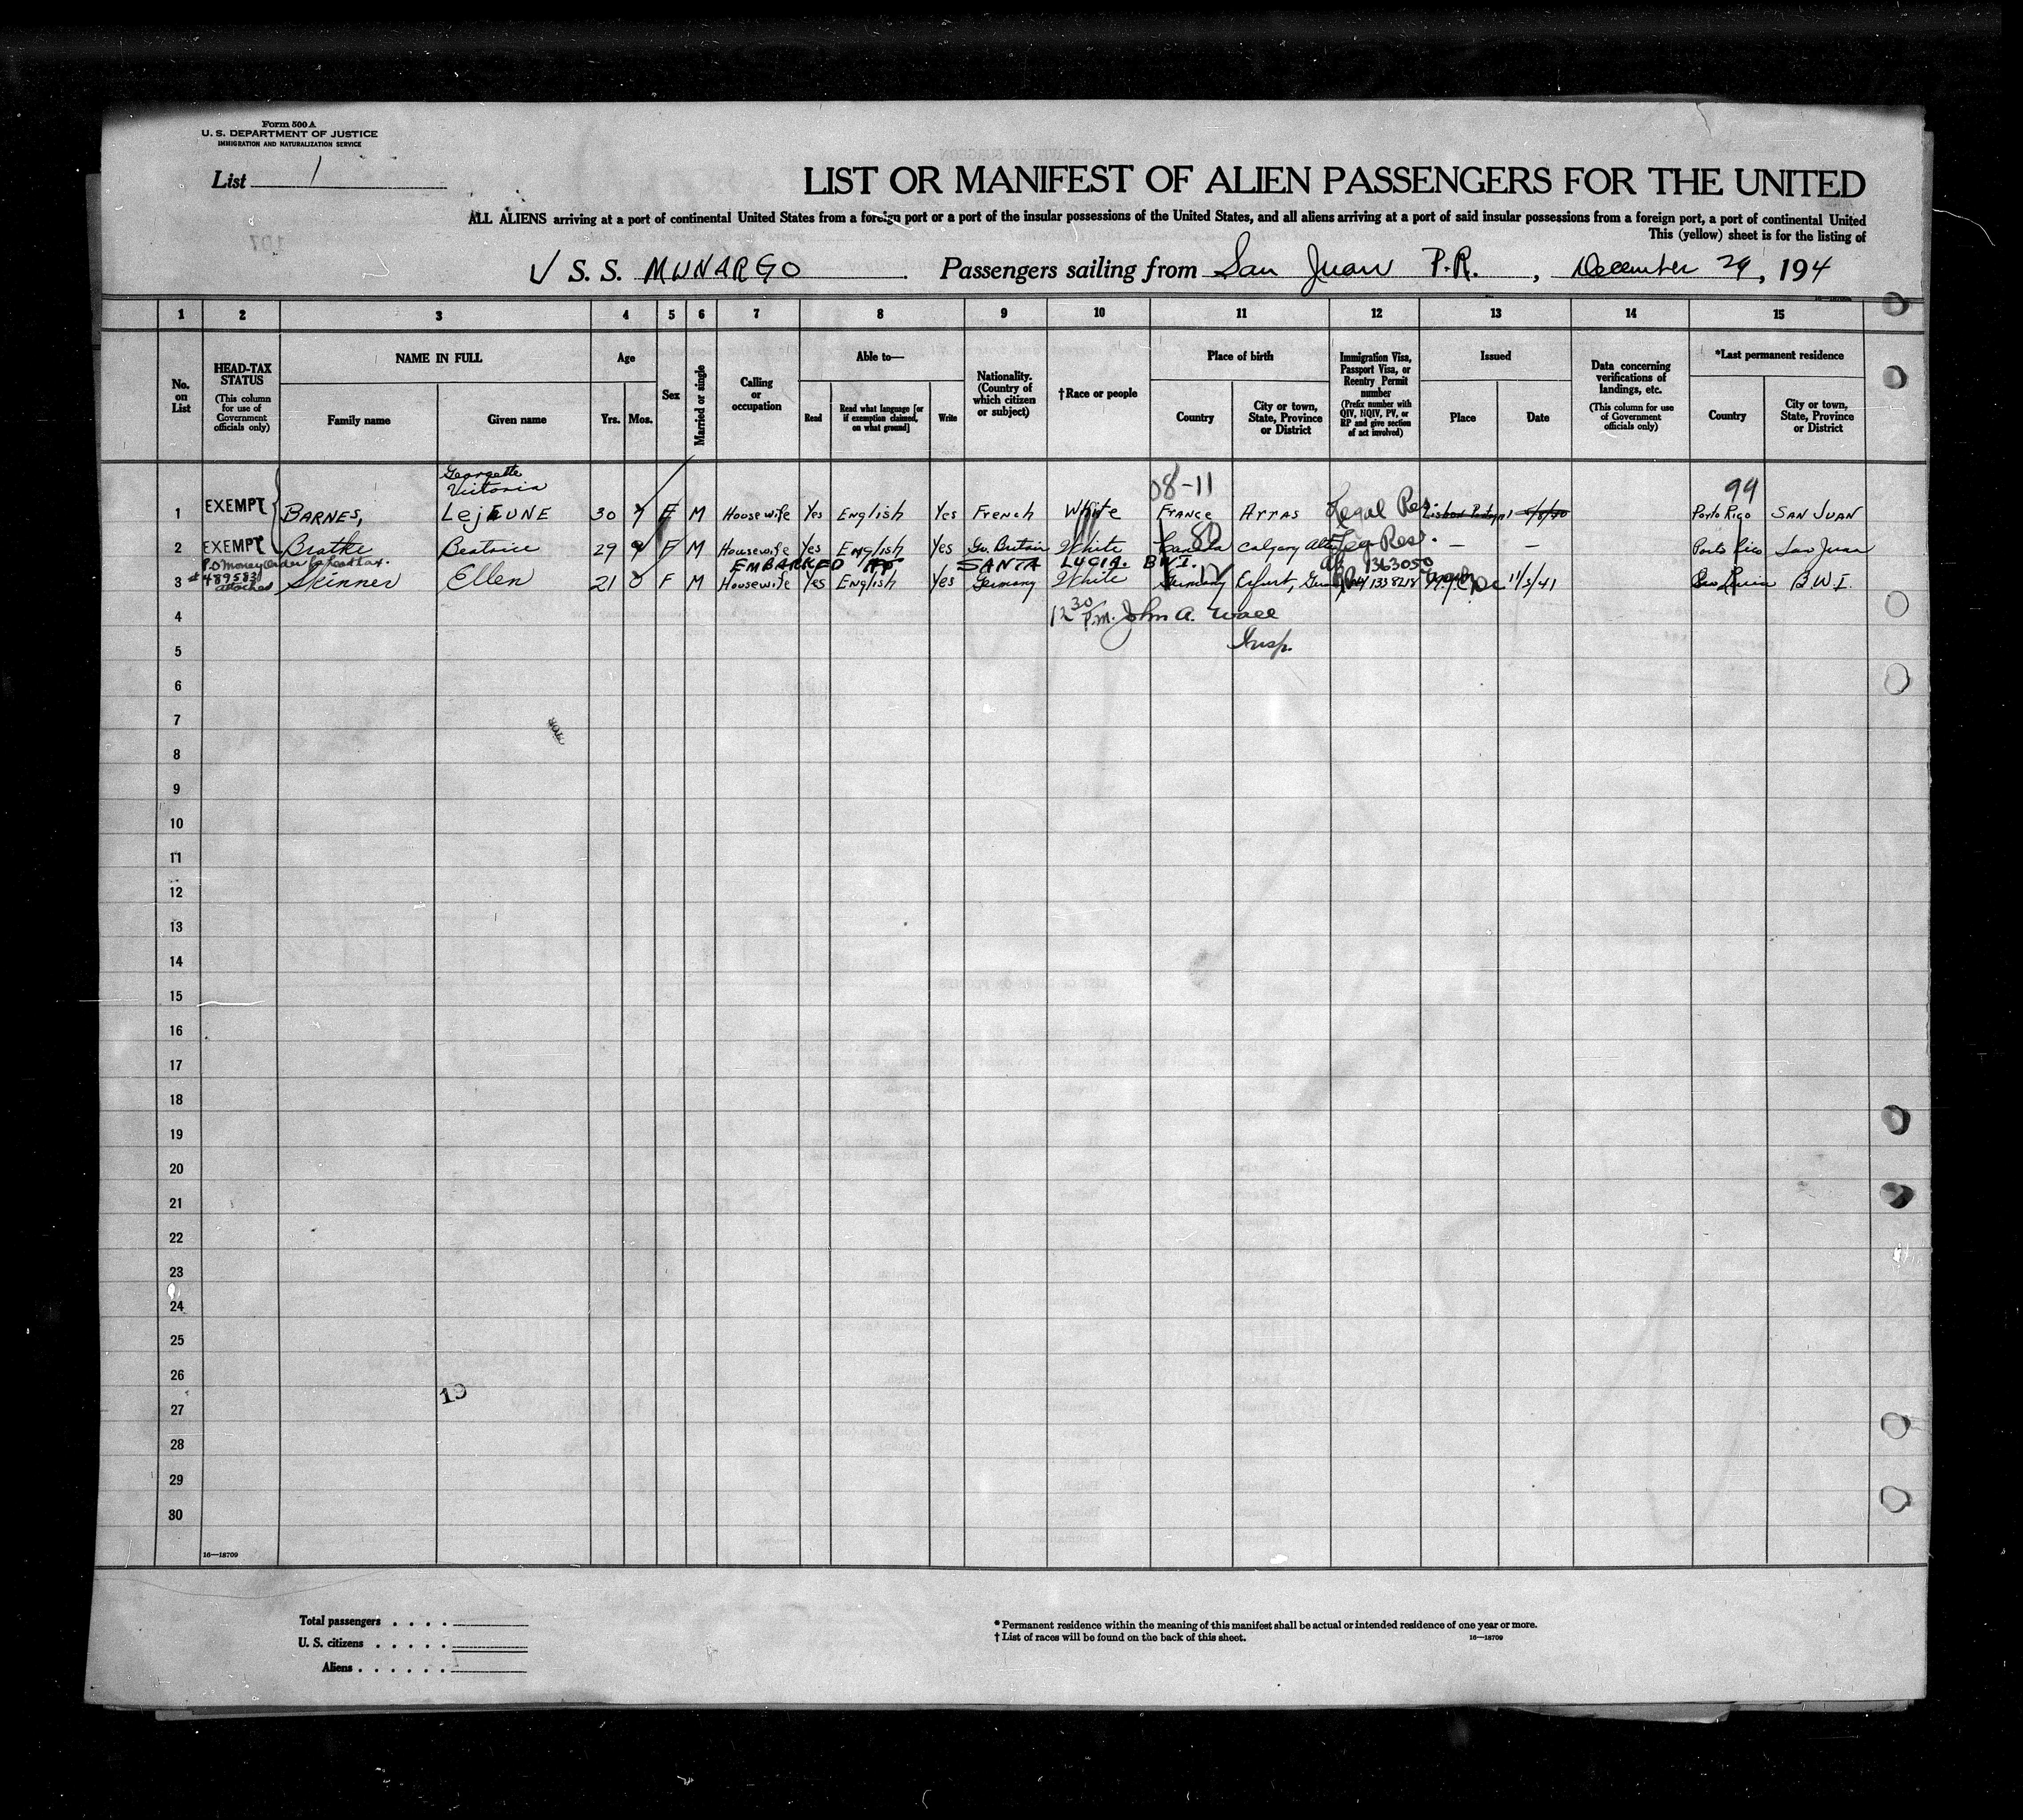 Form 500 A
U. S. DEPARTMENT OF JUSTICE
IMMIGRATION AND NATURALIZATION SERVICE
List 1
LIST OR MANIFEST OF ALIEN PASSENGERS FOR THE UNITED
ALL ALIENS arriving at a port of continental United States from a foreign port or a port of the insular possessions of the United States, and all aliens arriving at a port of said insular possessions from a foreign port, a port of continental United
This (yellow) sheet is for the listing of
S. S. MUNARGO Passengers sailing from San Juan P.R., December 29, 194
1 2 3 4 5 6 7 8 9 10 11 12 13 14 15
No. on List
HEAD-TAX STATUS
(This column for use of Government officials only)
NAME IN FULL
Family name Given name
Age
Yrs. Mos.
Sex
Married or single
Calling or occupation
Able to—
Read
Read what language [or if exemption claimed, on what ground]
Write
Nationality. (Country of which citizen or subject)
†Race or people
Place of birth
Country
City or town, State, Province or District
Immigration Visa, Passport Visa, or Reentry Permit number
(Prefix number with QIV, NQIV, PV, or RP and give section of act involved)
Issued
Place Date
Data concerning verifications of landings, etc.
(This column for use of Government officials only)
*Last permanent residence
Country
City or town, State, Province or District
Georgette
Victoria 08-11 99
1 EXEMPT BARNES, LejEUNE 30 7 F M Housewife Yes English Yes French White FRANCE ARRAS Legal Res Porto Rico SAN JUAN
80
2 EXEMPT Bratke Beatrice 29 9 F M Housewife Yes English Yes Gr. Britain White Canada Calgary Alta Leg Res. – – Porto Rico San Juan
P.O Money Order for head tax. EMBARKED AT SANTA LUCIA. B.W.I. 1363050
3 #489583 attached Skinner Ellen 21 0 F M Housewife Yes English Yes Germany White Germany Erfurt, 1338218 11/3/41 B.W.I.
4 12 30 P.M. John A. Wall
5 Insp.
6
7
8
9
10
11
12
13
14
15
16
17
18
19
20
21
22
23
24
25
26
19
27
28
29
30
16—18709
Total passengers . . . .
U. S. citizens . . . . .
Aliens . . . . . .
* Permanent residence within the meaning of this manifest shall be actual or intended residence of one year or more.
† List of races will be found on the back of this sheet. 16—18709